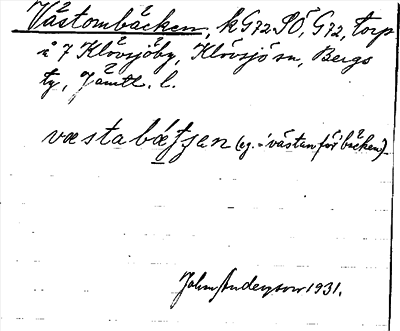 Västombäcken, k G 72 SÖ, G 72, torp
i 7 Klövsjöby, Klövsjö sn, Bergs
tg, Jämtl. l.
væstabǽtjen (eg. = 'västanför bäcken').
John Anderzson 1931.